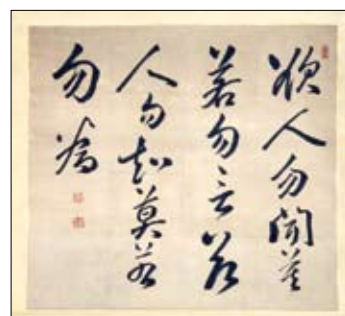 欲人勿聞莫
若勿言欲
人勿知莫若
勿為